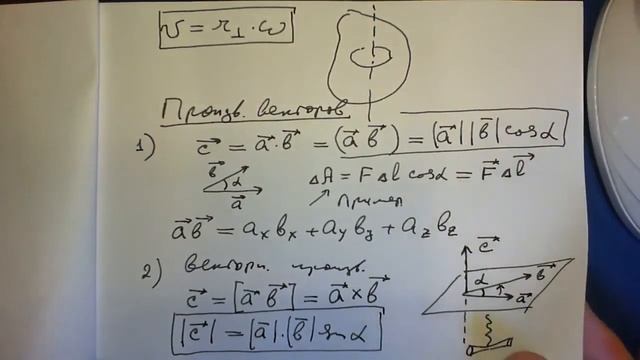 v = r⊥ · ω
Произв. векторов
1) c⃗ = a⃗ · b⃗ = (a⃗ b⃗) = |a⃗| |b⃗| cos α
b⃗ α a⃗
ΔA = F Δl cos α = F⃗ Δl⃗
пример
a⃗ b⃗ = aₓbₓ + a_y b_y + a_z b_z
2) Векторн. произв.
c⃗ = [a⃗ b⃗] = a⃗ × b⃗
|c⃗| = |a⃗| · |b⃗| sin α
c⃗
α b⃗
a⃗